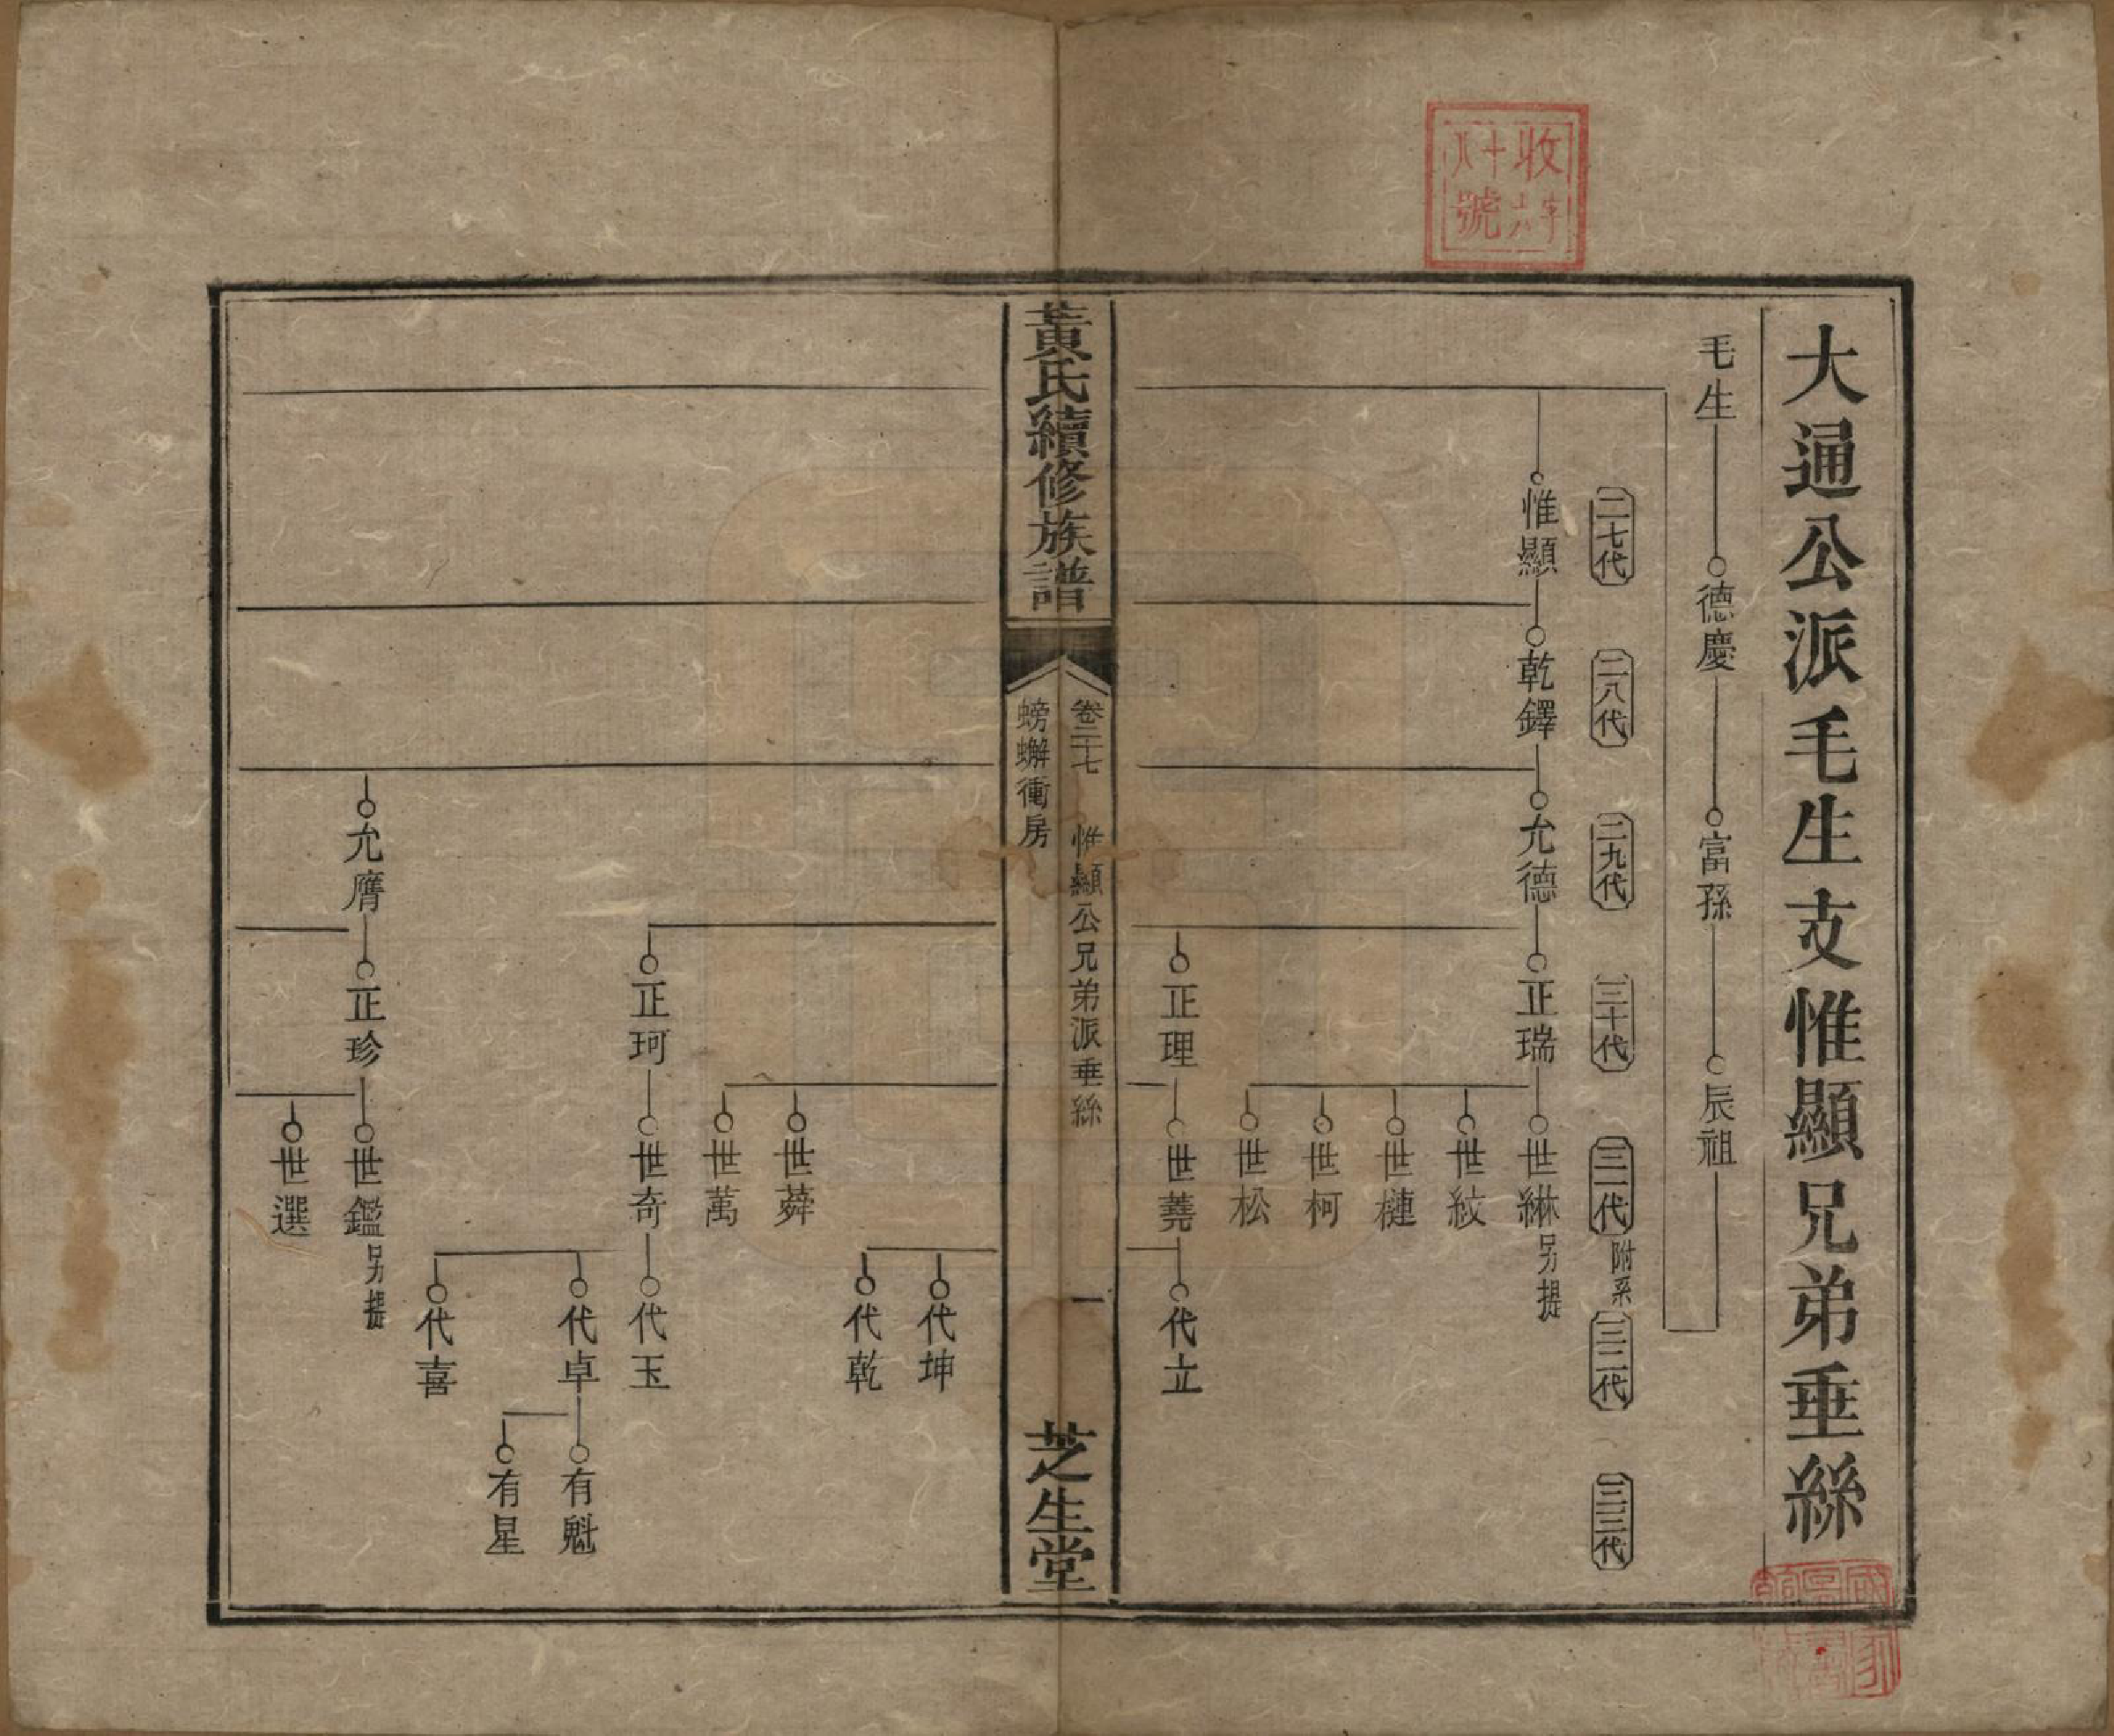 大通公派毛生支惟顯兄弟垂絲
毛生
德慶
富孫
辰祖
二七代
二八代
二九代
三十代
三一代
附系
三二代
三三代
惟顯
乾鐸
允德
正瑞
世綝
另提
世紋
世槤
世柯
世松
正理
世蕘
代立
黃氏續修族譜
卷二十七
惟顯公兄弟派垂絲
螃蠏衝房
一
芝生堂
代坤
代乾
世蕣
世萬
正珂
世奇
代玉
代卓
有魁
有星
代喜
允膺
正珍
世鑑
另提
世選